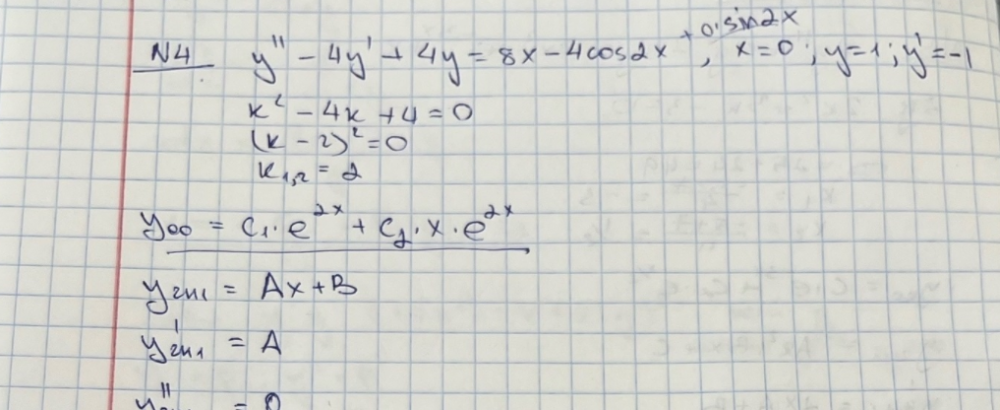 N4 y'' - 4y' + 4y = 8x - 4cos2x + 0·sin2x, x=0; y=1; y'=-1
k² - 4k + 4 = 0
(k - 2)² = 0
k₁,₂ = 2
yоо = C₁·e^2x + C₂·x·e^2x
yчн1 = Ax+B
y'чн1 = A
y'' = 0